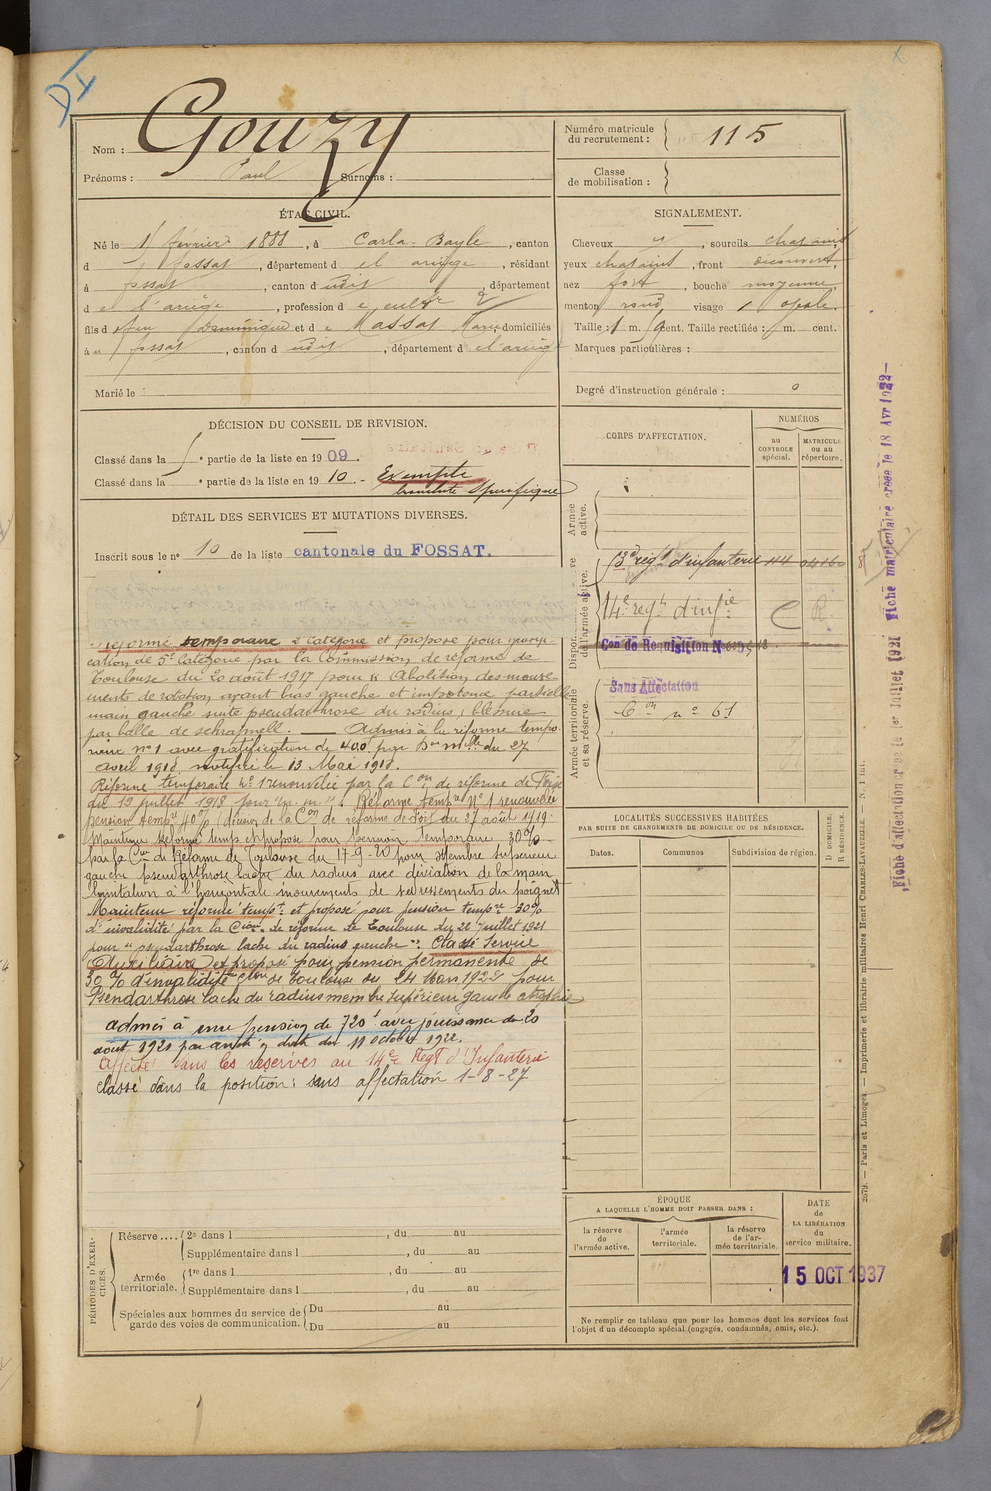 DI
Nom : Gouzy
Prénoms : Paul Surnoms :
Numéro matricule du recrutement : 115
Classe de mobilisation :
ÉTAT CIVIL.
Né le 1 février 1888, à Carla-Bayle, canton
d fossat, département d el ariège, résidant
à fossat, canton d udit, département
d e l'ariège, profession d e cultr
fils d efeu Dominique et d e Massat Marie domiciliés
à u fossat, canton d udit, département d el'ariège
Marié le
SIGNALEMENT.
Cheveux , sourcils chatains
yeux chatains, front découvert,
nez fort, bouche moyenne,
menton rond, visage ovale.
Taille : 1 m. cent. Taille rectifiée : m. cent.
Marques particulières :
Degré d'instruction générale : 0
DÉCISION DU CONSEIL DE REVISION.
Classé dans la e partie de la liste en 1909.
Classé dans la e partie de la liste en 1910. - Exempté
bronchite spécifique
DÉTAIL DES SERVICES ET MUTATIONS DIVERSES.
Inscrit sous le n° 10 de la liste cantonale du FOSSAT.
réformé temporaire 2e catégorie et proposé pour gratifi-
cation de 5e catégorie par la Commission de réforme de
Toulouse du 20 août 1917 pour « Abolition des mouve-
ments de rotation avant bras gauche et impotence partielle
main gauche suite pseudarthrose du radius, blessure
par balle de schrapnell. — Admis à la réforme tempo-
raire n° 1 avec gratification de 400f par Don mlle du 27
avril 1918 notifiée le 13 Mai 1918.
Réforme temporaire N° 1 renouvelée par la Con de réforme de Foix
du 12 juillet 1918 pour "m. m". Réforme tempre N° 1 renouvelée
pension tempre 40% (décision de la Con de réforme de Foix du 27 août 1919.
Maintenu réformé temp et proposé pour pension temporaire 30%
par la Con de Réforme de Toulouse du 17-9-20 pour membre supérieur
gauche pseudarthrose lache du radius avec déviation de la main
limitation à l'horizontale mouvements de redressements du poignet
Maintenu réformé tempre et proposé pour pension tempre 30%
d'invalidité par la Cion de réforme de Toulouse du 22 Juillet 1921
pour "pseudarthrose lache du radius gauche". Classé Service
Auxiliaire et proposé pour pension permanente de
30% d'invalidité Con de Toulouse du 24 Mars 1922 pour
Pseudarthrose lache du radius membre supérieur gauche atrophie
admis à une pension de 720f avec jouissance du 20
août 1921 par arrêté en date du 11 octobre 1922.
Affecté dans les réserves au 14e Régt d'Infanterie
classé dans la position : sans affectation 1-8-27
CORPS D'AFFECTATION.
NUMÉROS
au CONTROLE spécial.
MATRICULE ou au répertoire.
Armée active.
Dispon. ve de l'armée active.
83e régt d'infanterie
14e régt d'infie
Con de Requisition
Armée territoriale et sa réserve.
Sans Affectation
Con n° 61
LOCALITÉS SUCCESSIVES HABITÉES
PAR SUITE DE CHANGEMENTS DE DOMICILE OU DE RÉSIDENCE.
Dates.
Communes
Subdivision de région.
D DOMICILE.
R RÉSIDENCE.
ÉPOQUE
A LAQUELLE L'HOMME DOIT PASSER DANS :
la réserve de l'armée active.
l'armée territoriale.
la réserve de l'ar-mée territoriale.
DATE de LA LIBÉRATION du service militaire.
15 OCT 1937
Ne remplir ce tableau que pour les hommes dont les services font
l'objet d'un décompte spécial (engagés, condamnés, omis, etc.).
PÉRIODES D'EXER-CICES.
Réserve .... 2e dans l , du au
Supplémentaire dans l , du au
Armée territoriale. 1re dans l , du au
Supplémentaire dans l , du au
Spéciales aux hommes du service de Du au
garde des voies de communication. Du au
2079. — Paris et Limoges. — Imprimerie et librairie militaires Henri CHARLES-LAVAUZELLE. — N. 1 int.
Fiche d'affectation créée le 1er Juillet 1921 Fiche matriculaire créée le 18 Avr 1922